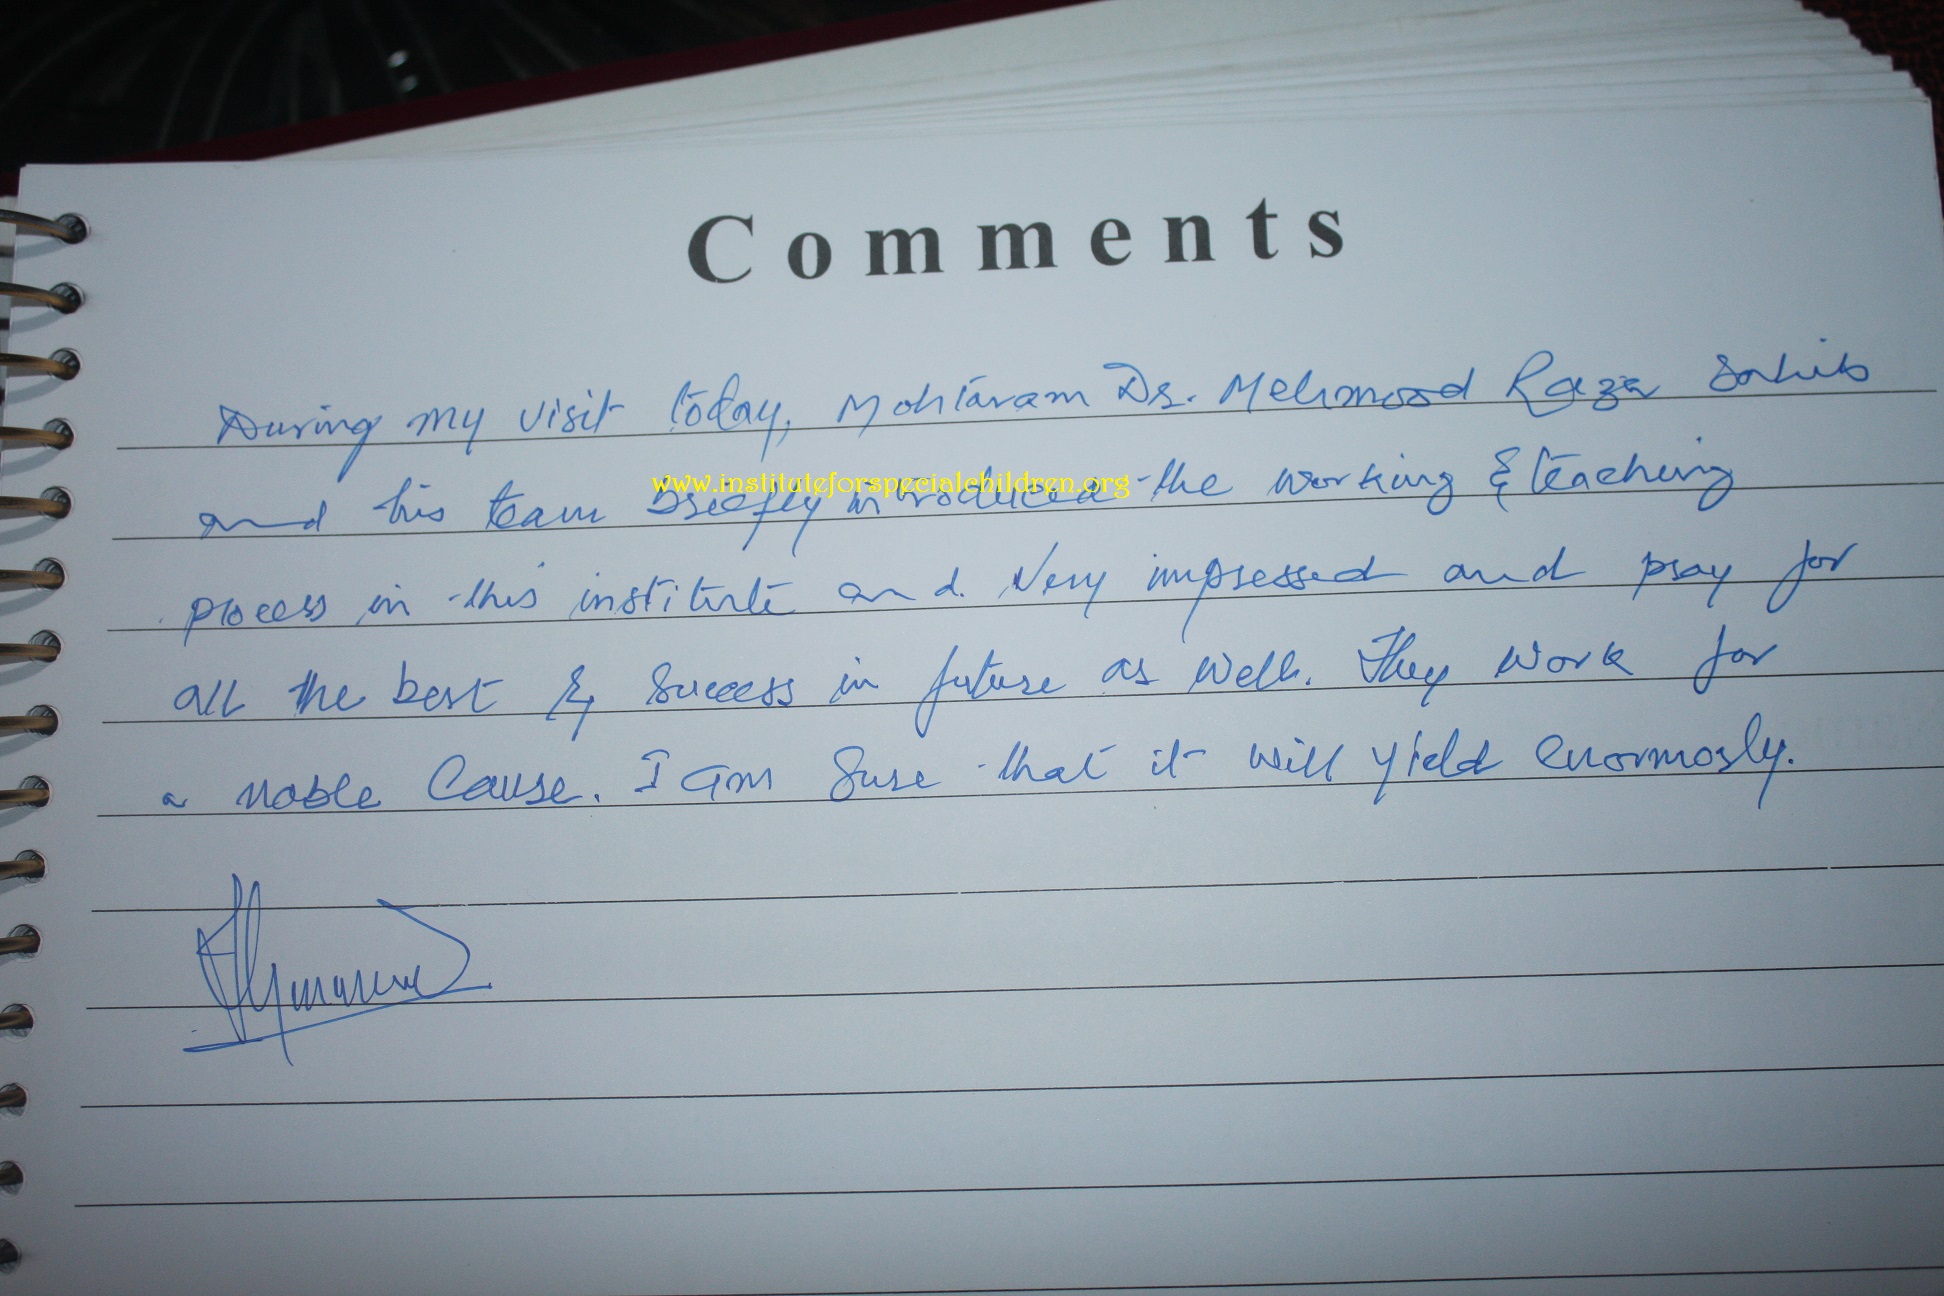 Comments
During my visit today, Mohtaram Dr. Mehmood Raza Sahib
www.instituteforspecialchildren.org
and his team briefly introduced the working & teaching
process in this institute and. Very impressed and pray for
all the best & success in future as well. They work for
a noble cause. I am sure that it will yield enormosly.